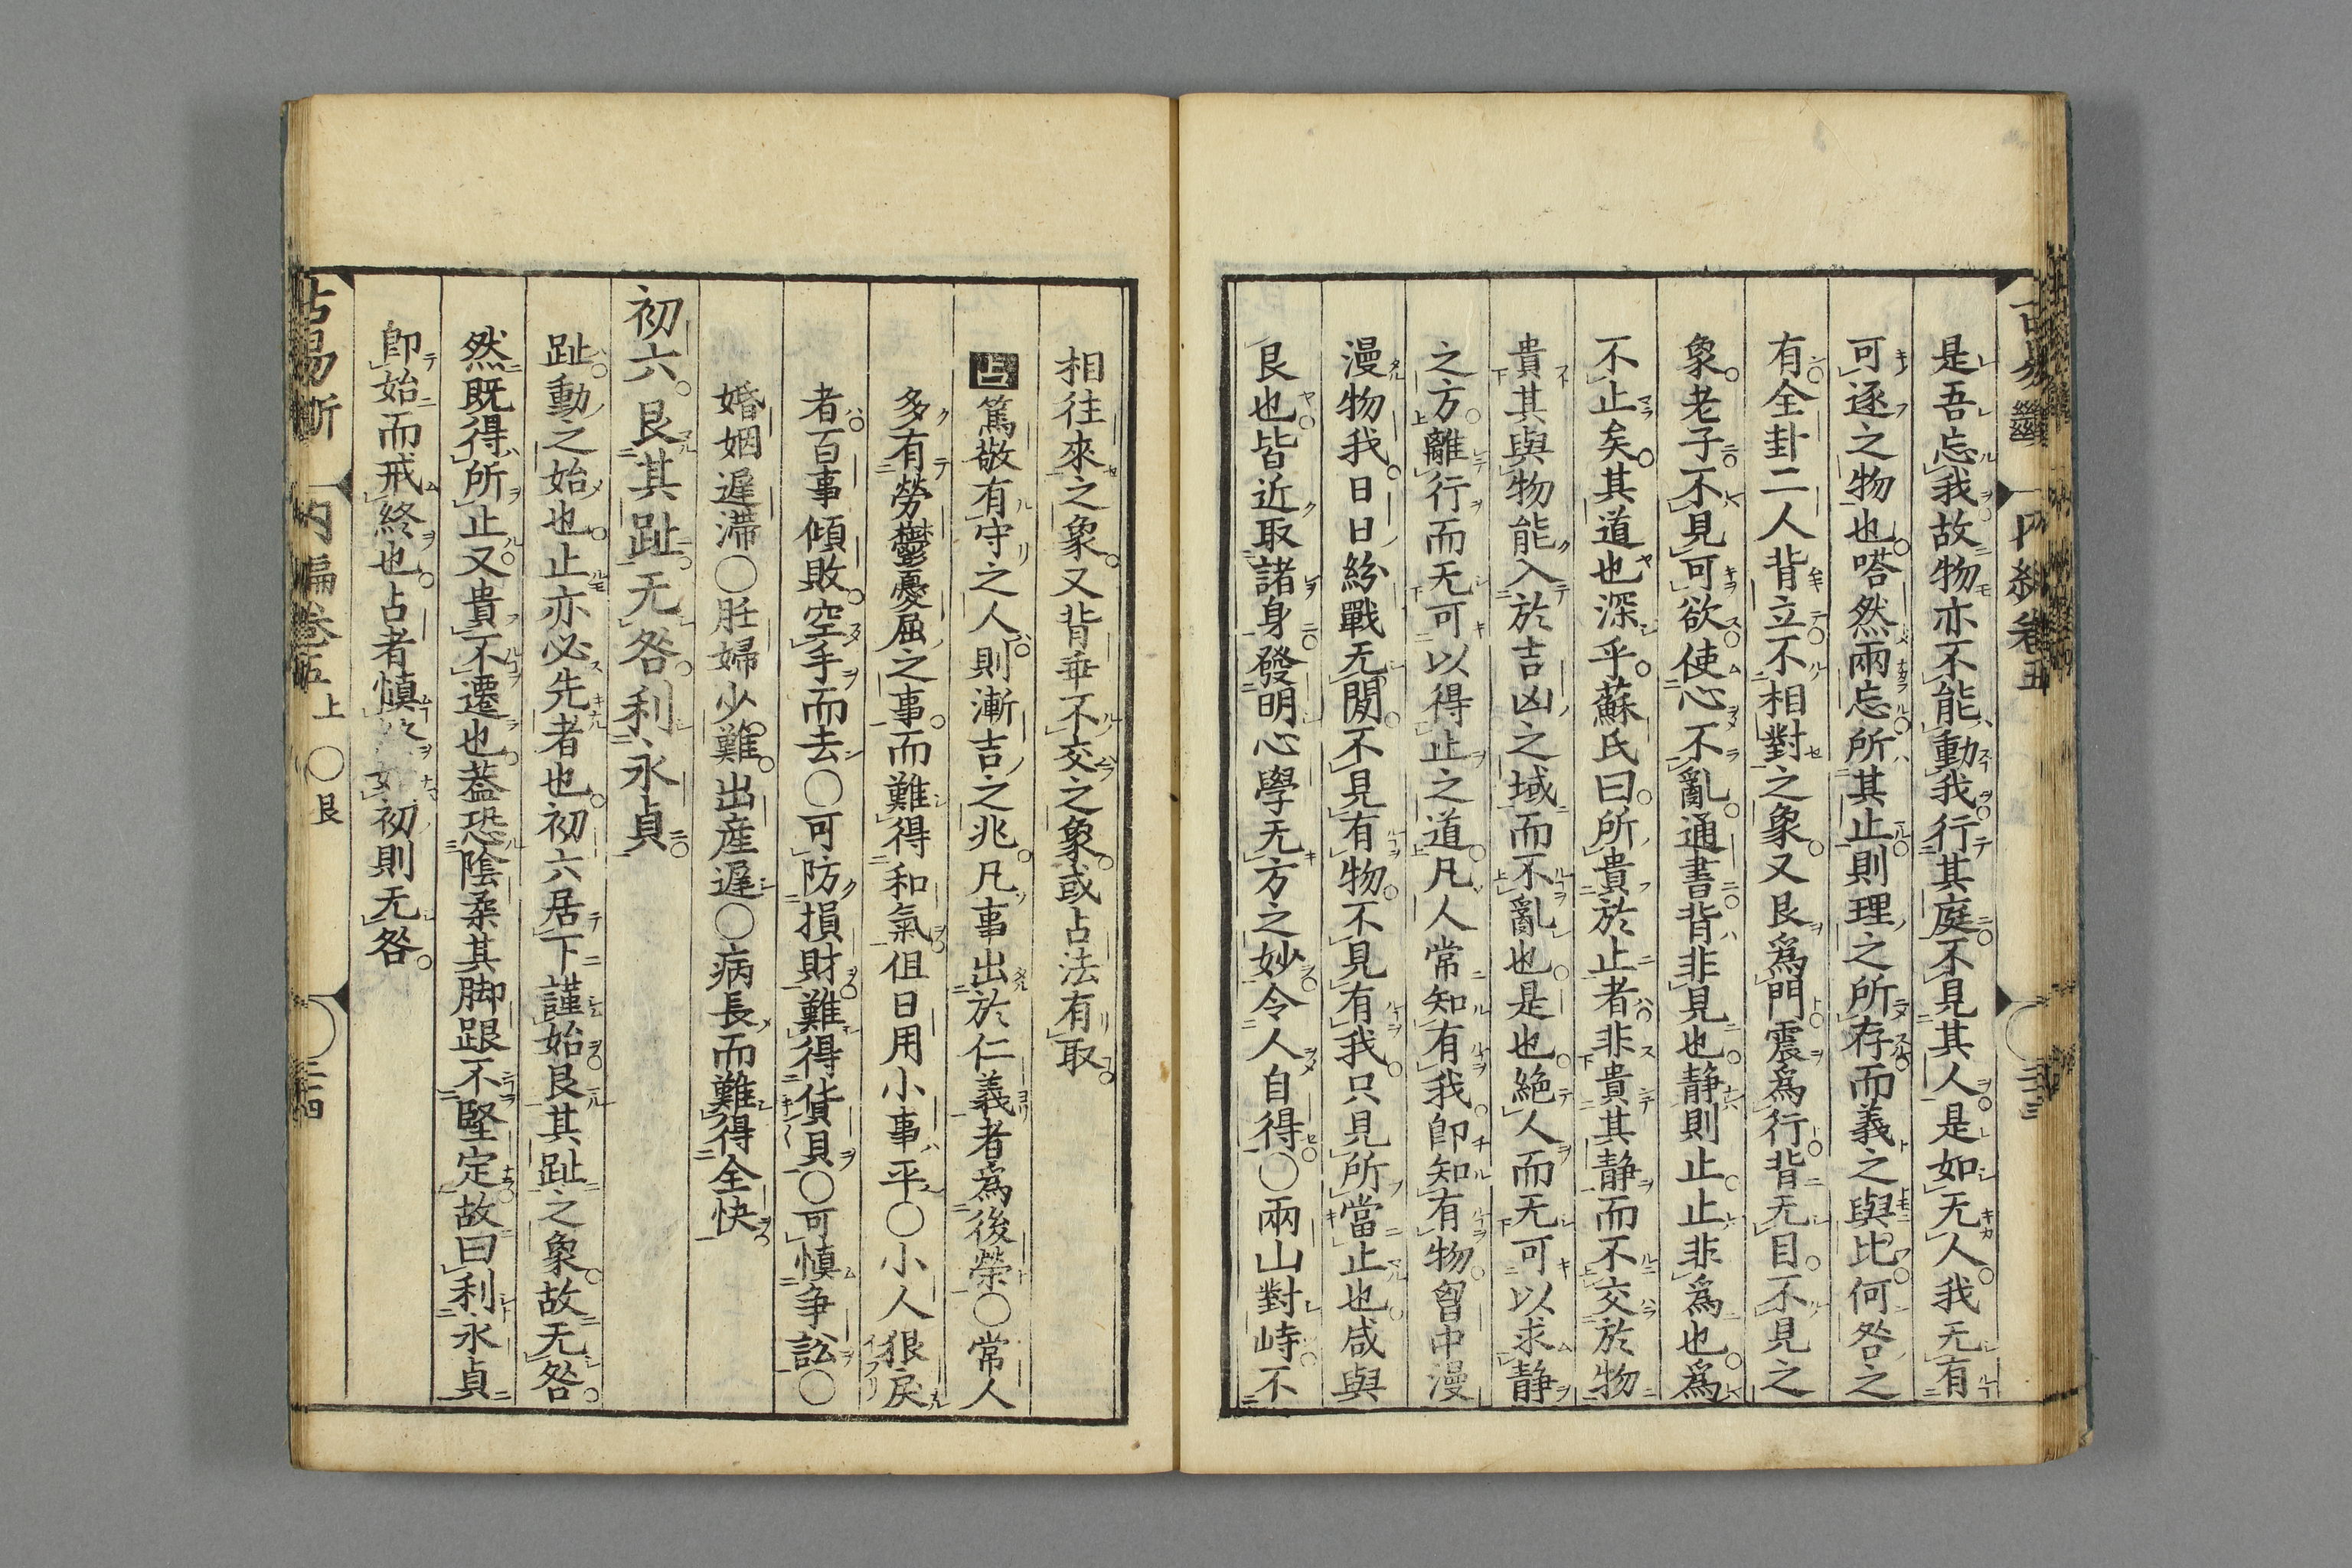 是吾忘我故物亦不能動我行其庭不見其人是如无人我无有
可逐之物也嗒然兩忘所其止則理之所存而義之與比何咎之
有全卦二人背立不相對之象又艮爲門震爲行背无目不見之
象老子不見可欲使心不亂通書背非見也静則止止非爲也爲
不止矣其道也深乎蘇氏曰所貴於止者非貴其静而不交於物
貴其與物能入於吉凶之域而不亂也是也絶人而无可以求静
之方離行而无可以得止之道凡人常知有我卽知有物曾中漫
漫物我日日紛戰无閒不見有物不見有我只見所當止也咸與
艮也皆近取諸身發明心學无方之妙令人自得○兩山對峙不
相往來之象又背乖不交之象或占法有取
占篤敬有守之人則漸吉之兆凡事出於仁義者爲後榮○常人
多有勞鬱憂屈之事而難得和氣但日用小事平○小人狠戾
者百事傾敗空手而去○可防損財難得貨貝○可慎争訟○
婚姻遲滯○胜婦少難出産遲○病長而難得全快
初六艮其趾无咎利永貞
趾動之始也止亦必先者也初六居下謹始艮其趾之象故无咎
然既得所止又貴不遷也蓋恐陰柔其脚跟不堅定故曰利永貞
卽始而戒終也占者慎初則无咎
占易斷 内編卷五上 ○艮 三十四